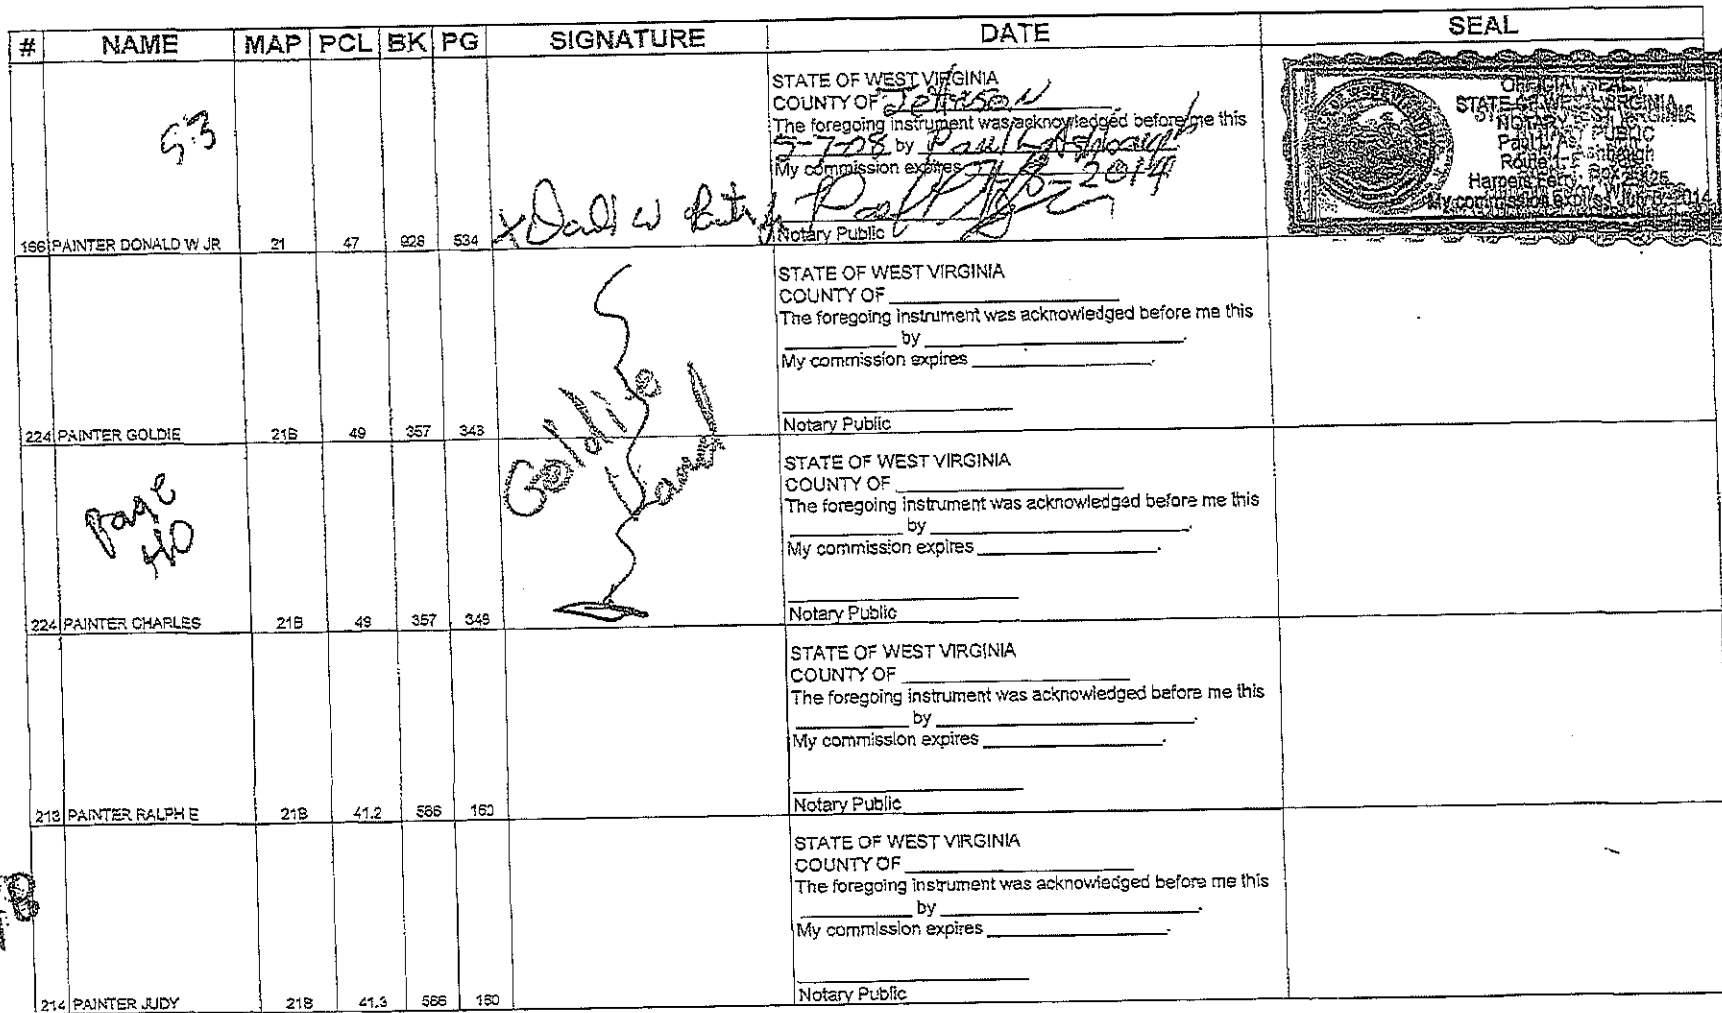 # NAME MAP PCL BK PG SIGNATURE DATE SEAL
53
STATE OF WEST VIRGINIA
COUNTY OF Jefferson
The foregoing instrument was acknowledged before me this
5-7-08 by Paul L Ashbaugh
My commission expires 2014
Notary Public
OFFICIAL SEAL
STATE OF WEST VIRGINIA
NOTARY PUBLIC
Paul
Route
Harpers Ferry,
My commission expires July 6, 2014
166 PAINTER DONALD W JR 21 47 928 534
X Donald W Painter Jr
STATE OF WEST VIRGINIA
COUNTY OF
The foregoing instrument was acknowledged before me this
by
My commission expires
Notary Public
224 PAINTER GOLDIE 21B 49 357 343
Goldie
page
40
STATE OF WEST VIRGINIA
COUNTY OF
The foregoing instrument was acknowledged before me this
by
My commission expires
Notary Public
224 PAINTER CHARLES 21B 49 357 348
STATE OF WEST VIRGINIA
COUNTY OF
The foregoing instrument was acknowledged before me this
by
My commission expires
Notary Public
213 PAINTER RALPH E 21B 41.2 566 160
STATE OF WEST VIRGINIA
COUNTY OF
The foregoing instrument was acknowledged before me this
by
My commission expires
Notary Public
214 PAINTER JUDY 21B 41.3 566 160